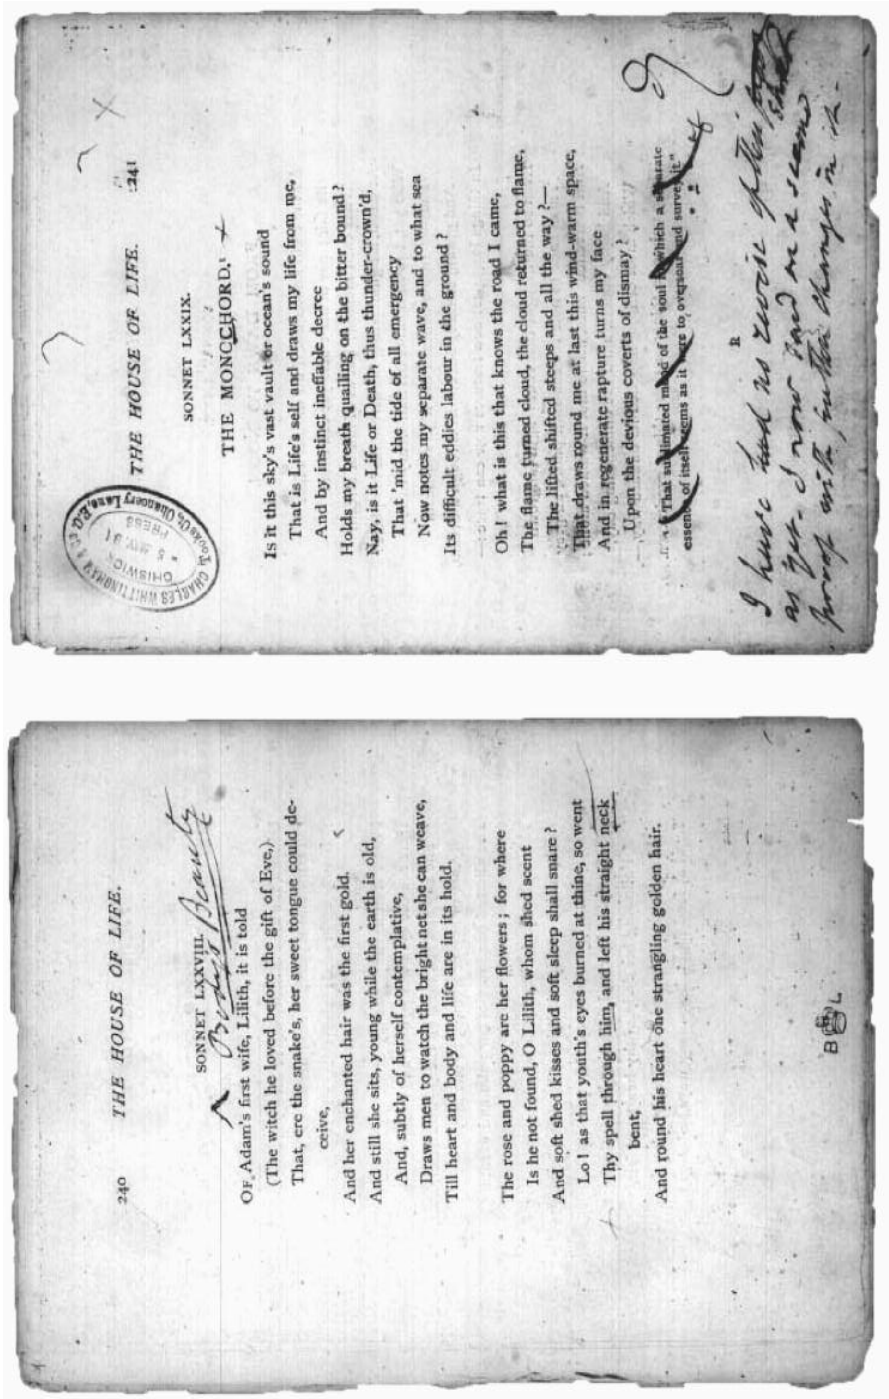 240 THE HOUSE OF LIFE.
SONNET LXXVIII.
Body's Beauty
OF Adam's first wife, Lilith, it is told
(The witch he loved before the gift of Eve,)
That, ere the snake's, her sweet tongue could de-
ceive,
And her enchanted hair was the first gold.
And still she sits, young while the earth is old,
And, subtly of herself contemplative,
Draws men to watch the bright net she can weave,
Till heart and body and life are in its hold.
The rose and poppy are her flowers; for where
Is he not found, O Lilith, whom shed scent
And soft shed kisses and soft sleep shall snare?
Lo! as that youth's eyes burned at thine, so went
Thy spell through him, and left his straight neck
bent,
And round his heart one strangling golden hair.
B L
THE HOUSE OF LIFE. 241
CHARLES WHITTINGHAM & CO
Tooks Ct, Chancery Lane, E.C.
CHISWICK
PRESS
SONNET LXXIX.
THE MONOCHORD.¹
Is it this sky's vast vault or ocean's sound
That is Life's self and draws my life from me,
And by instinct ineffable decree
Holds my breath quailing on the bitter bound?
Nay, is it Life or Death, thus thunder-crown'd,
That 'mid the tide of all emergency
Now notes my separate wave, and to what sea
Its difficult eddies labour in the ground?
Oh! what is this that knows the road I came,
The flame turned cloud, the cloud returned to flame,
The lifted shifted steeps and all the way?—
That draws round me at last this wind-warm space,
And in regenerate rapture turns my face
Upon the devious coverts of dismay?
"That sublimated mood of the soul in which a separate
essence of itself seems as it were to oversoar and survey it."
R
I have had no revise of this
as yet. I now send me a second
proof with further changes in it.